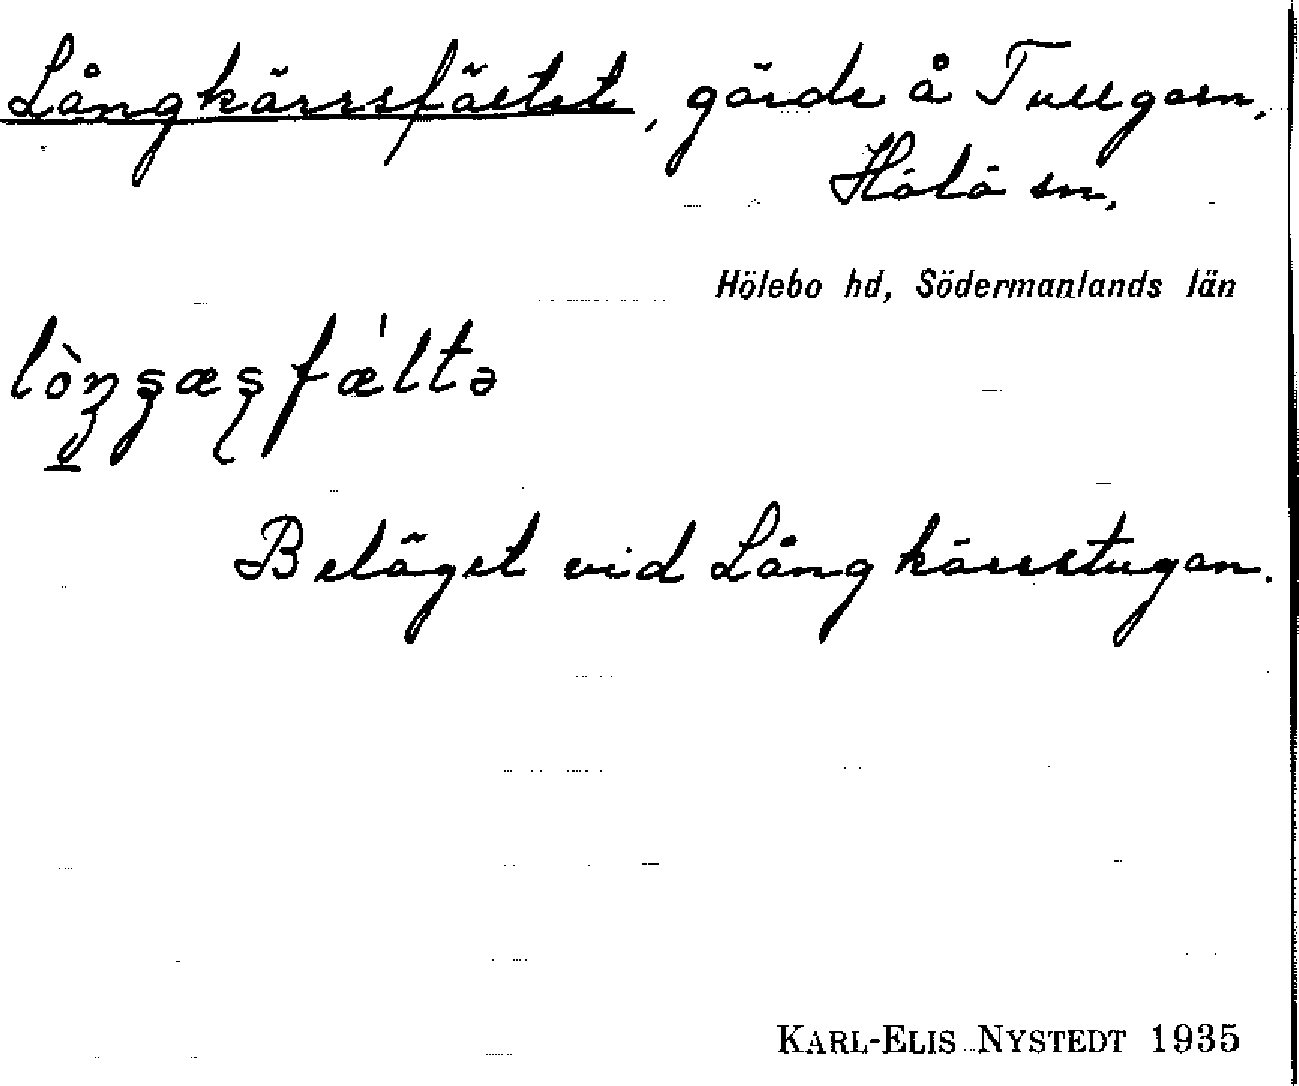 Långkärrsfältet, gärde å Tullgarn,
Hölö sn,
Hölebo hd, Södermanlands län
Beläget vid Långkärrstugan.
KARL-ELIS NYSTEDT 1935